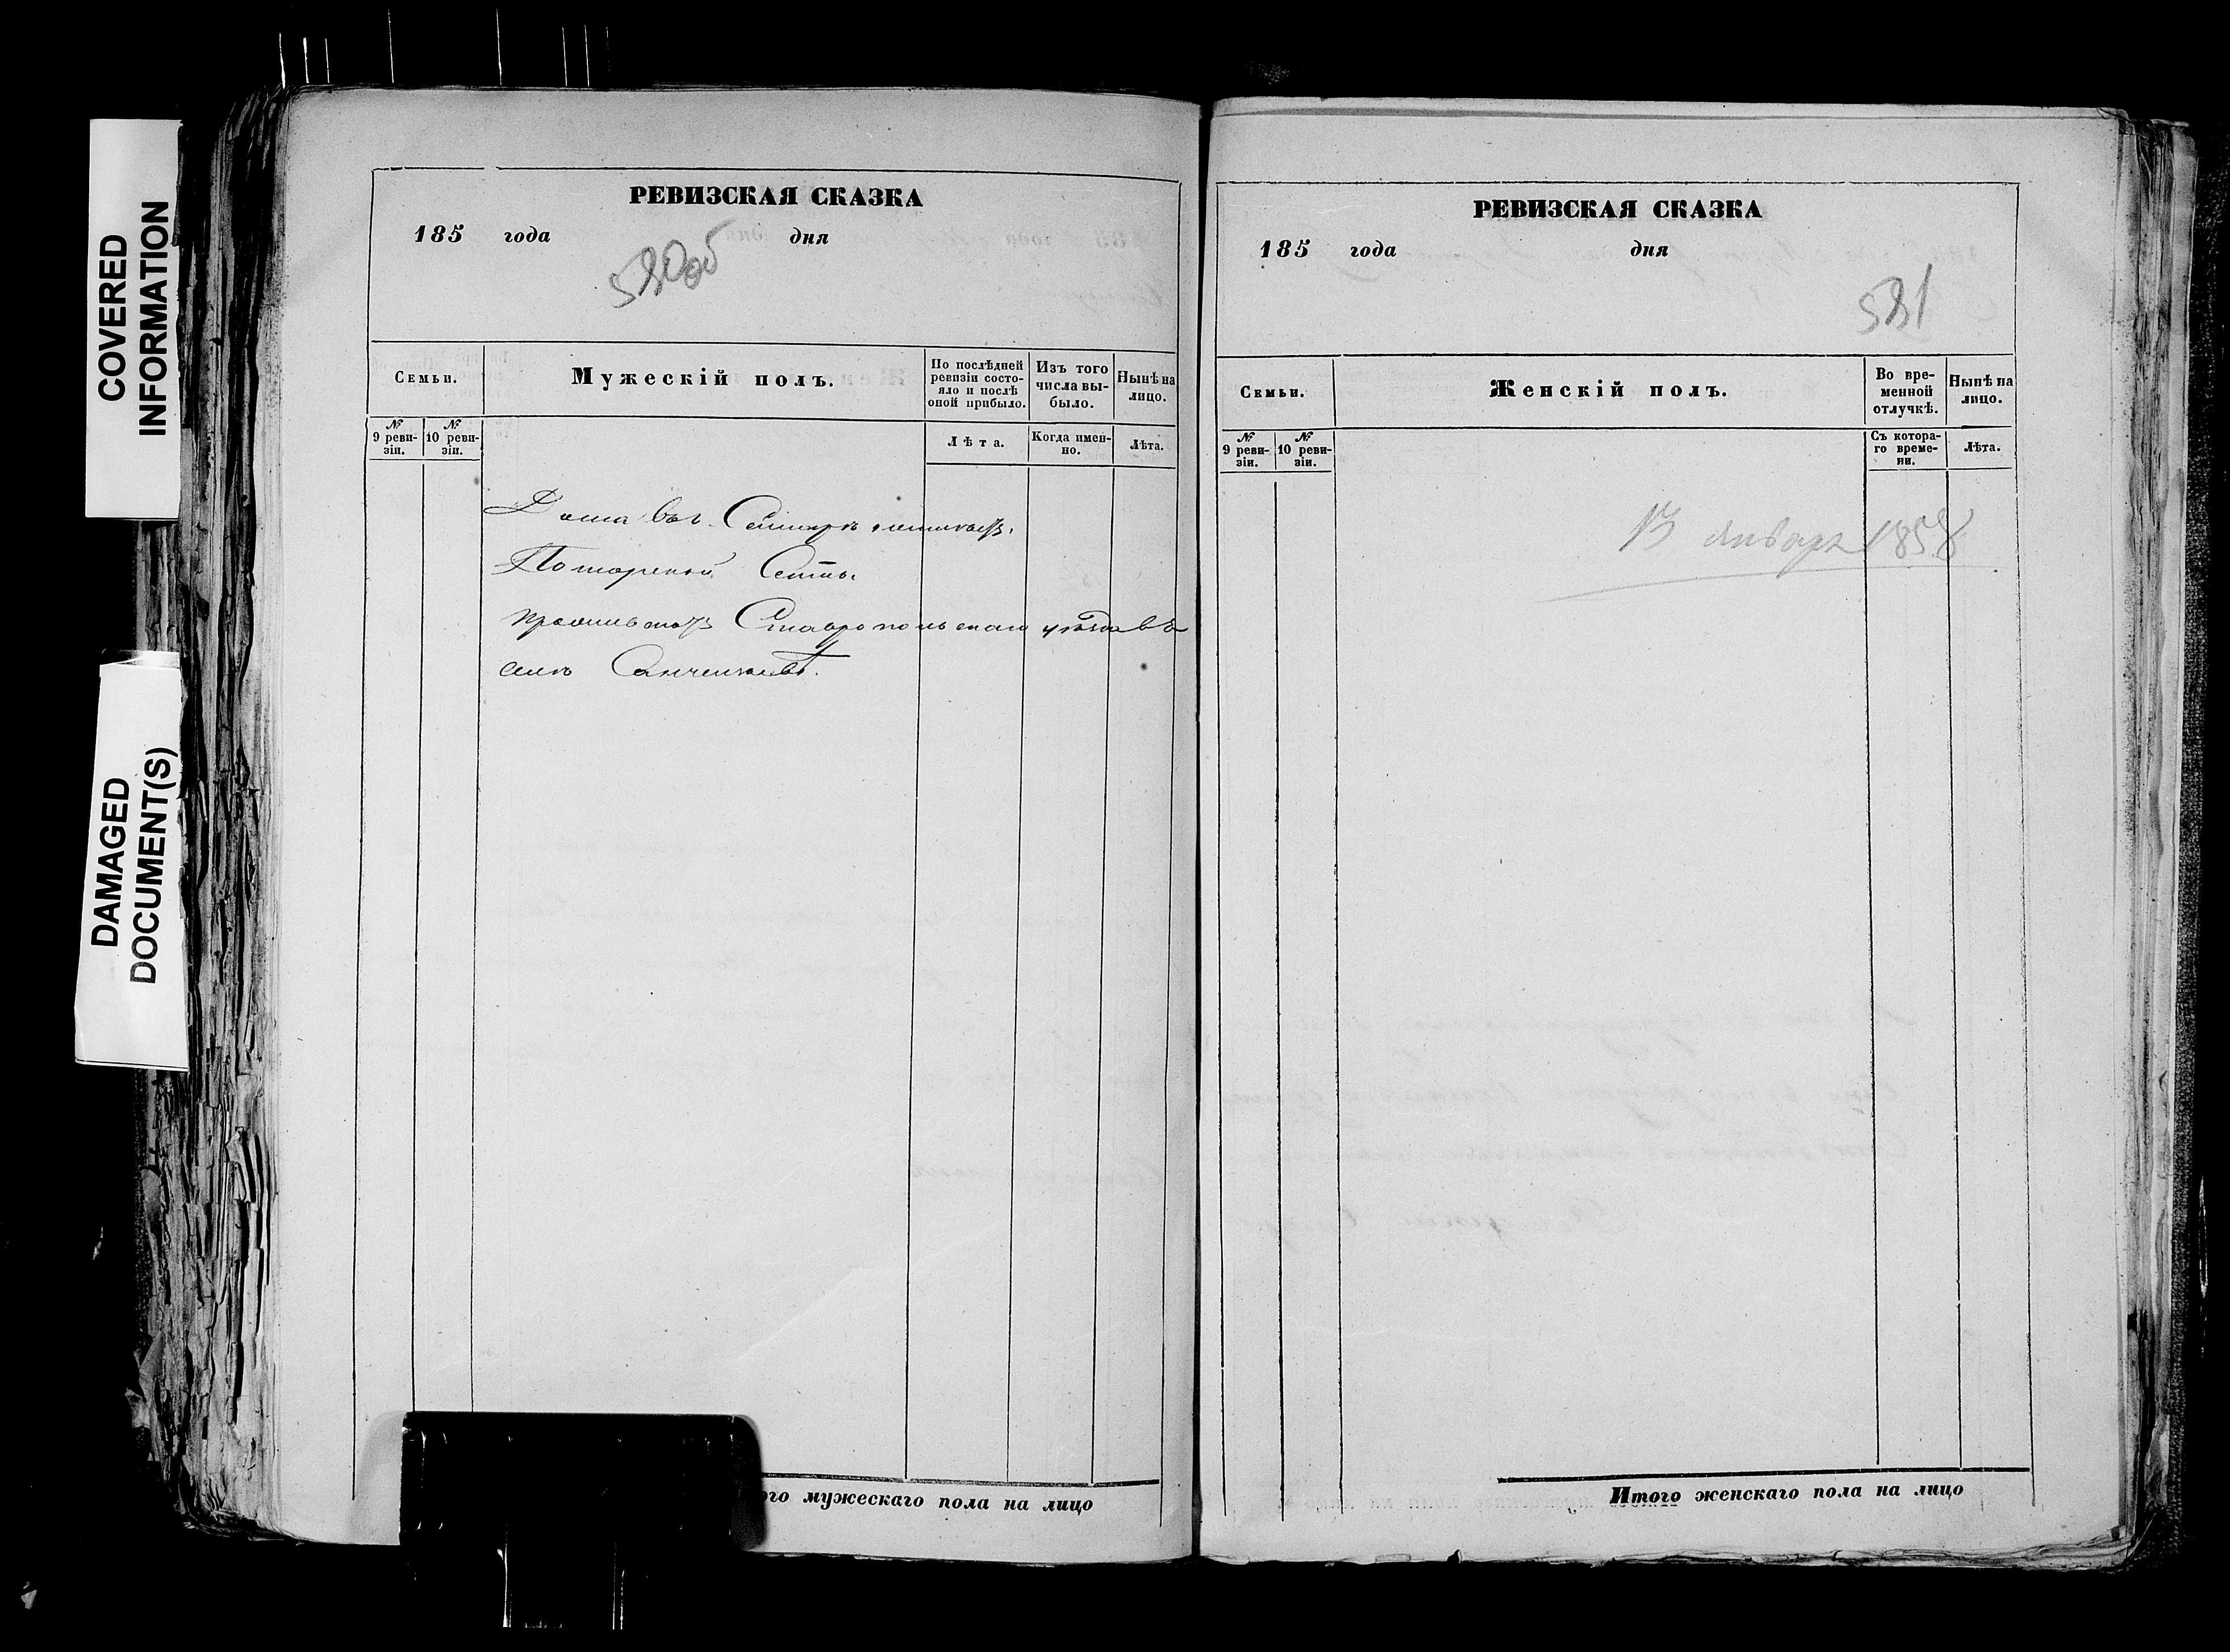 COVERED
INFORMATION
DAMAGED
DOCUMENT(S)
РЕВИЗСКАЯ СКАЗКА
185 года дня
530об
Семьи.
Мужескій полъ.
По послѣдней ревизіи состо-яло и послѣ оной прибыло.
Изъ того числа вы-было.
Нынѣ на лицо.
№ 9 реви-зіи.
№ 10 реви-зіи.
Лѣта.
Когда имен-но.
Лѣта.
Дома въ г.
Сеть
Ставропольскаго уѣзда въ
селѣ Санчелѣевѣ.
ого мужескаго пола на лицо
РЕВИЗСКАЯ СКАЗКА
185 года дня
531
Семьи.
Женскій полъ.
Во вре-менной отлучкѣ.
Нынѣ на лицо.
№ 9 реви-зіи.
№ 10 реви-зіи.
Съ котора-го време-ни.
Лѣта.
13 января 1858
Итого женскаго пола на лицо